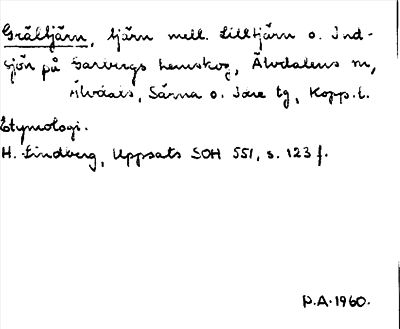 Gråltjärn, tjärn mell. Lilltjärn o. Ind-
sjön på Garbergs hemskog, Älvdalens sn,
Älvdals, Särna o. Idre tg, Kopp.l.
Etymologi.
H. Lindberg, Uppsats SOH 551, s. 123 f.
P.A. 1960.